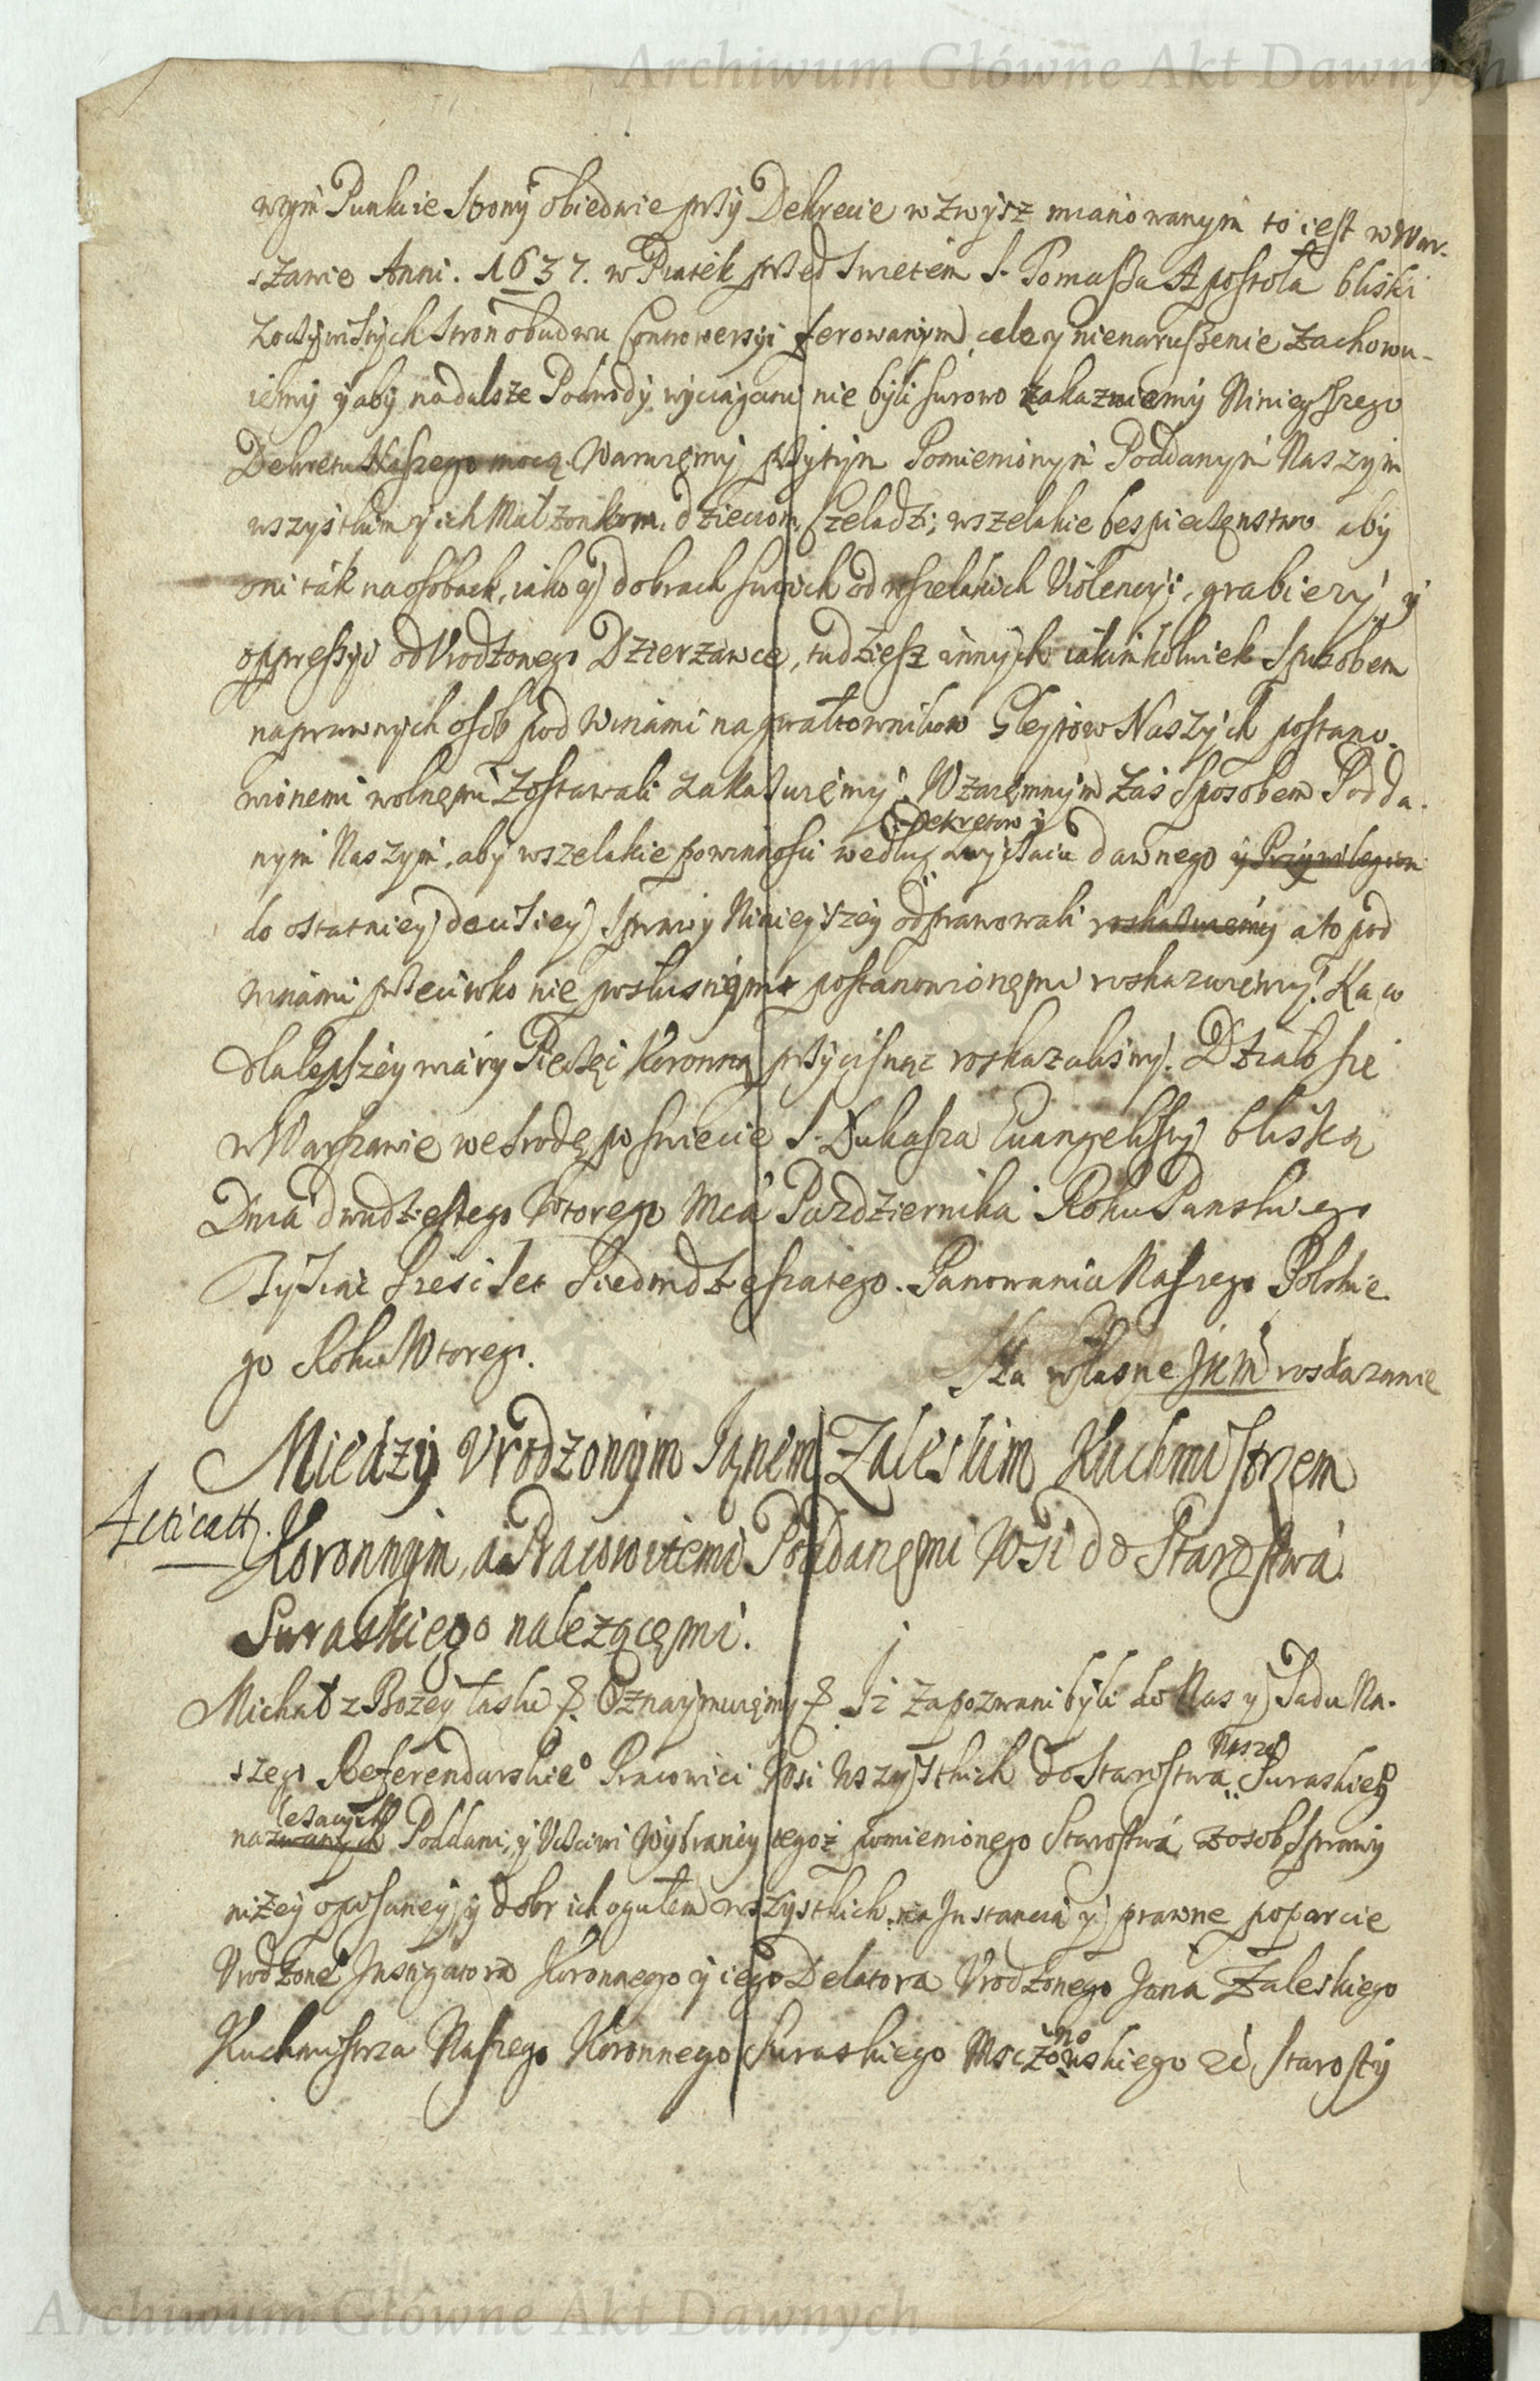 Archiwum Główne Akt Dawnych
wtym Punkcie Strony obiedwie przy Dekrecie wzwysz mianowanym to iest w War-
szawie Anni. 1637. w Piątek przed Swietem S. Tomassa Apostoła bliski
zoczywistych stron obudwu Controwersyi ferowanym cale y nienarussenie zachowu-
iemy y aby nadalsze Podwody wyciągani nie byli surowo zakazuiemy Ninieyszego
Dekretu Naszego mocą Waruięmy przytym Pomienionym Poddanym Naszym
wszystkim y ich Małzonkom, dzieciom, Czeladzi, wszelakie bespieczęnstwo aby
oni ták na osobach, iako y dobrach swoich od wszelakich Violencyi, grabiezy, y
oppressyi od Urodzonego Dzierzawce, tudziesz innych iakimkolwiek Sposobem
naprawnych osób pod winámi na gwałtowników Gleytow Naszych postano-
wionemi wolnęmi zostawali zakazuięmy. Wzaięmnym zas Sposobem Podda-
Dekretow y
nym Naszym, aby wszelakie powinnosci według zwyczaiu dawnego y Przywilegiow
do ostatniey decisiey Sprawy Ninieyszey odprawowali roskazuięmy a to pod
winámi przeciwko nieposłusnym postanowionęmi roskazuięmy. Na co
dla lepszey wiáry Pieczęć Koronną przycisnąc roskazalismy. Działo się
w Warszawie we Srodę po swiecie S. Łukasza Ewangelisty bliską
Dniá dwudziestego Wtorego Mcá Pazdziernika Roku Panskiego
Tysiąc Szesc Set Siedmdzięsiatego. Panowania Naszego Polskie-
go Roku Wtorego.
Na własne JKM roskazanie
Między Vrodzonym Janem Zaleskim Kuchmistrzem
Acticatt.
Koronnym, a Pracowitemi Poddanęmi Wsi do Starostwá
Suraskiego nalezącęmi.
Michał z Bozey łaski &. Oznaymuięmy &. Iż zapozwani byli do Nas y Sądu Na-
szego Referendarskieo Pracowici Wsi Wszystkich do Starostwa Naszeo Suraskieo
lezących
nazwanych Poddani, y Uczciwi Wybrancy tegoż pomienionego Starostwá z osob Sprawy
niżey opisaney y dobr ich ogułem wszystkich, na Instancią y prawne poparcie
Vrodzoneo Instygatora Koronnego y iego Delatora Vrodzonego Jana Zaleskiego
Kuchmistrza Naszego Koronnego Suraskiego
Starosty
Archiwum Główne Akt Dawnych